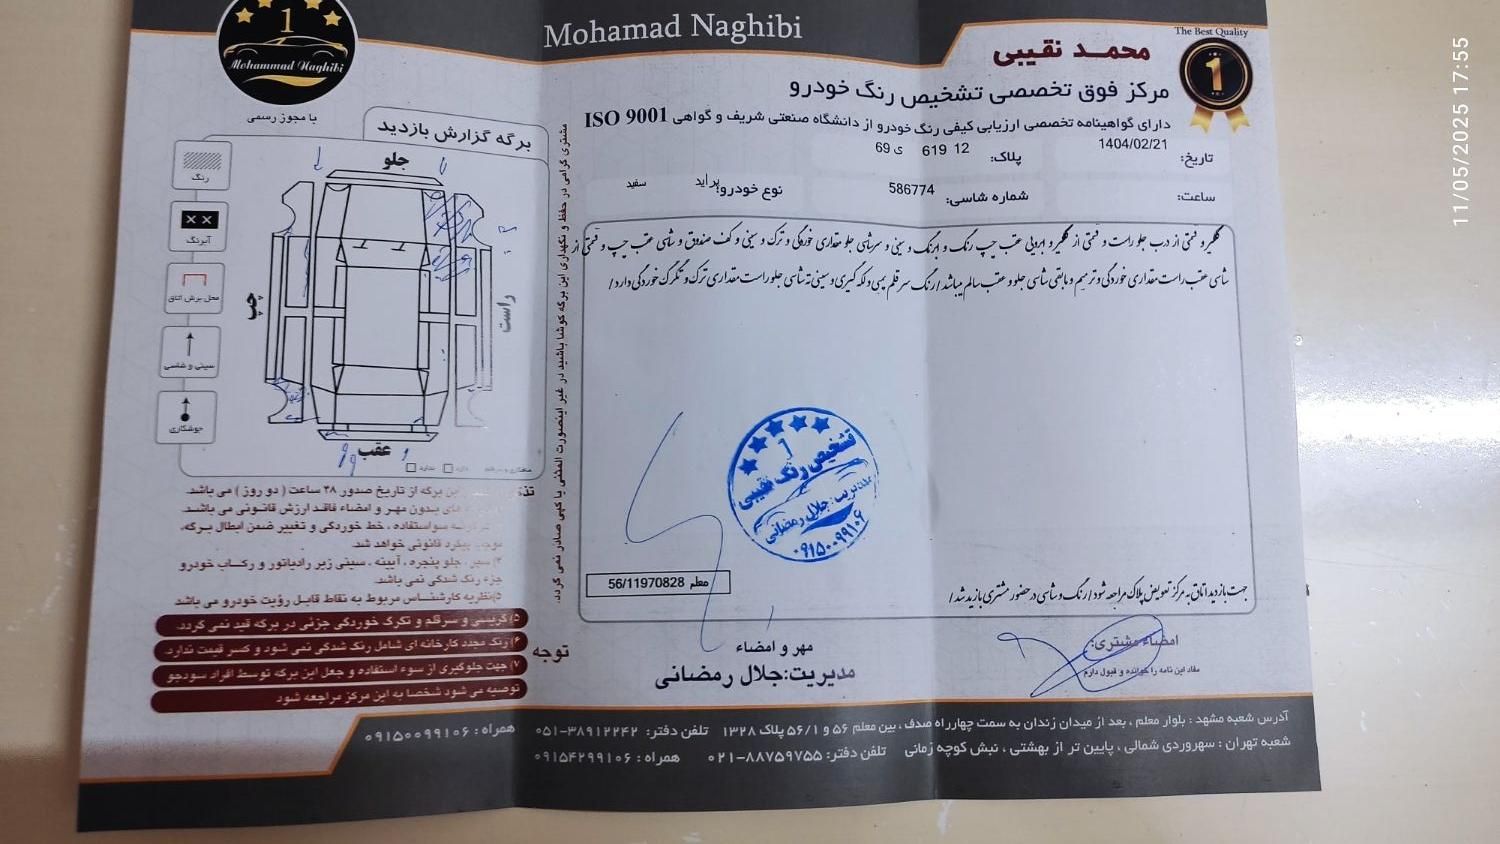 Mohamad Naghibi
The Best Quality
1
محمـد نقیبی
مرکز فوق تخصصی تشخیص رنگ خودرو
دارای گواهینامه تخصصی ارزیابی کیفی رنگ خودرو از دانشگاه صنعتی شریف و گواهی ISO 9001
تاریخ: 1404/02/21 پلاک: 12 619 ی 69
ساعت: شماره شاسی: 586774 نوع خودرو: پراید سفید
گلگیر و قمتی از درب جلو راست و قمتی از گلگیر و ابرویی عقب چپ رنگ و ابرنگ و سینی و سرشاسی جلو مقداری خوردگی و ترک و سینی و کف صندوق و شاسی عقب چپ و قمتی از
شاسی عقب راست مقداری خوردگی و ترمیم و مابقی شاسی جلو و عقب سالم میباشد/رنگ سر قلم پسی و لکه گیری و سینی ته شاسی جلو راست مقداری ترک و تگرگ خوردگی دارد/
1
تشخیص رنگ نقیبی
مدیریت: جلال رمضانی
۰۹۱۵۰۰۹۹۱۰۶
معلم 56/11970828
جهت بازدید اتاق به مرکز تعویض پلاک مراجعه شود/رنگ و شاسی در حضور مشتری بازدید شد/
مهر و امضاء
مدیریت:جلال رمضانی
امضاء مشتری:
مفاد این نامه را خوانده و قبول دارم
1
Mohammad Naghibi
با مجوز رسمی
برگه گزارش بازدید
رنگ
آبرنگ
محل برش اتاق
سینی و شاسی
جوشکاری
جلو
چپ
راست
عقب
دارد ندارد
مشتری گرامی در حفظ و نگهداری این برگه کوشا باشید در غیر اینصورت المثنی یا کپی صادر نمی گردد.
این برگه از تاریخ صدور ۴۸ ساعت ( دو روز ) می باشد.
های بدون مهر و امضاء فاقد ارزش قانونی می باشد.
سواستفاده ، خط خوردگی و تغییر ضمن ابطال برگه،
موجب پیگرد قانونی خواهد شد.
۴) سپر، جلو پنجره ، آیینه ، سینی زیر رادیاتور و رکاب خودرو
جزء رنگ شدگی نمی باشد.
۵)نظریه کارشناس مربوط به نقاط قابل رؤیت خودرو می باشد
توجه
۵) گریسی و سرقلم و تگرگ خوردگی جزئی در برگه قید نمی گردد.
۶) رنگ مجدد کارخانه ای شامل رنگ شدگی نمی شود و کسر قیمت ندارد.
۷) جهت جلوگیری از سوء استفاده و جعل این برگه توسط افراد سودجو
توصیه می شود شخصا به این مرکز مراجعه شود
آدرس شعبه مشهد : بلوار معلم ، بعد از میدان زندان به سمت چهارراه صدف ، بین معلم ۵۶ و ۵۶/۱ پلاک ۱۳۲۸ تلفن دفتر: ۳۸۹۱۲۲۴۲-۰۵۱ همراه : ۰۹۱۵۰۰۹۹۱۰۶
شعبه تهران : سهروردی شمالی ، پایین تر از بهشتی ، نبش کوچه زمانی تلفن دفتر: ۸۸۷۵۹۷۵۵-۰۲۱ همراه : ۰۹۱۵۴۲۹۹۱۰۶
11/05/2025 17:55